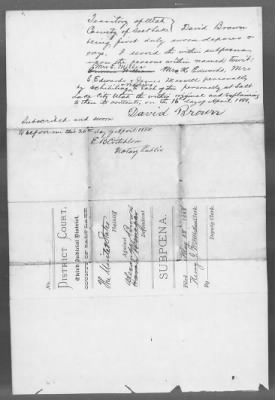 Territory of Utah
County of Salt Lake David Brown
being first duly sworn deposes &
says. I served the within subpoena
upon the persons within named to wit:
Mrs H. Edwards, Mrs
E Edwards & Jennie Mansell personally
by exhibiting & reading to each of them personally at Salt
Lake City Utah the within original and explaining
to them its contents, on the 16th day of April 1880.
David Brown
Subscribed and sworn
before me this 20th day of April 1880
Notary Public
No.
DISTRICT COURT,
Third Judicial District,
COUNTY OF SALT LAKE
The United States
Plaintiff
Against
Defendant
SUBPŒNA.
Filed
By
Deputy Clerk.